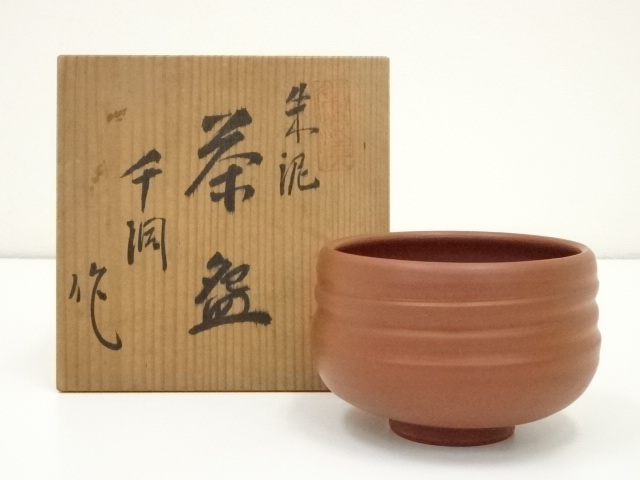 朱泥
茶盌
千洞
作